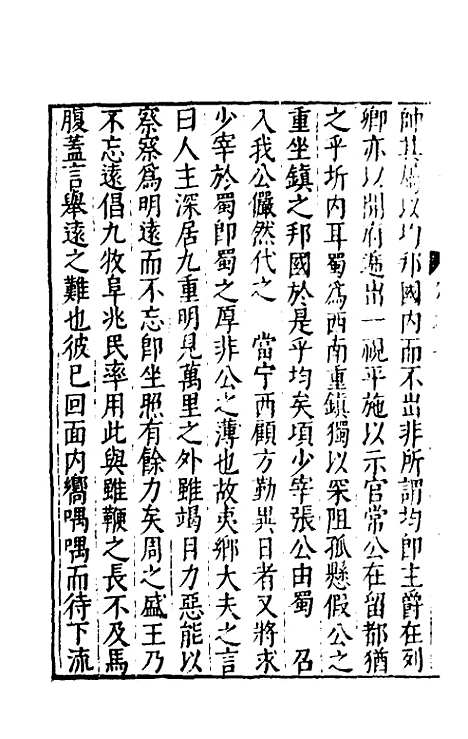 帥其屬以均邦國内而不出非所謂均即主爵在列
卿亦以開府遞出一視平施以示官常公在留都猶
之乎圻内耳蜀爲西南重鎮獨以深阻孤懸假公之
重坐鎮之邦國於是乎均矣項少宰張公由蜀 召
入我公儼然代之 當宁西顧方勤異日者又將求
少宰於蜀即蜀之厚非公之薄也故夷鄉大夫之言
曰人主深居九重明見萬里之外雖竭目力惡能以
察察爲明遠而不忘即坐照有餘力矣周之盛王乃
不忘遠倡九牧阜兆民率用此與雖鞭之長不及馬
腹蓋言舉遠之難也彼已回面内嚮喁喁而待下流